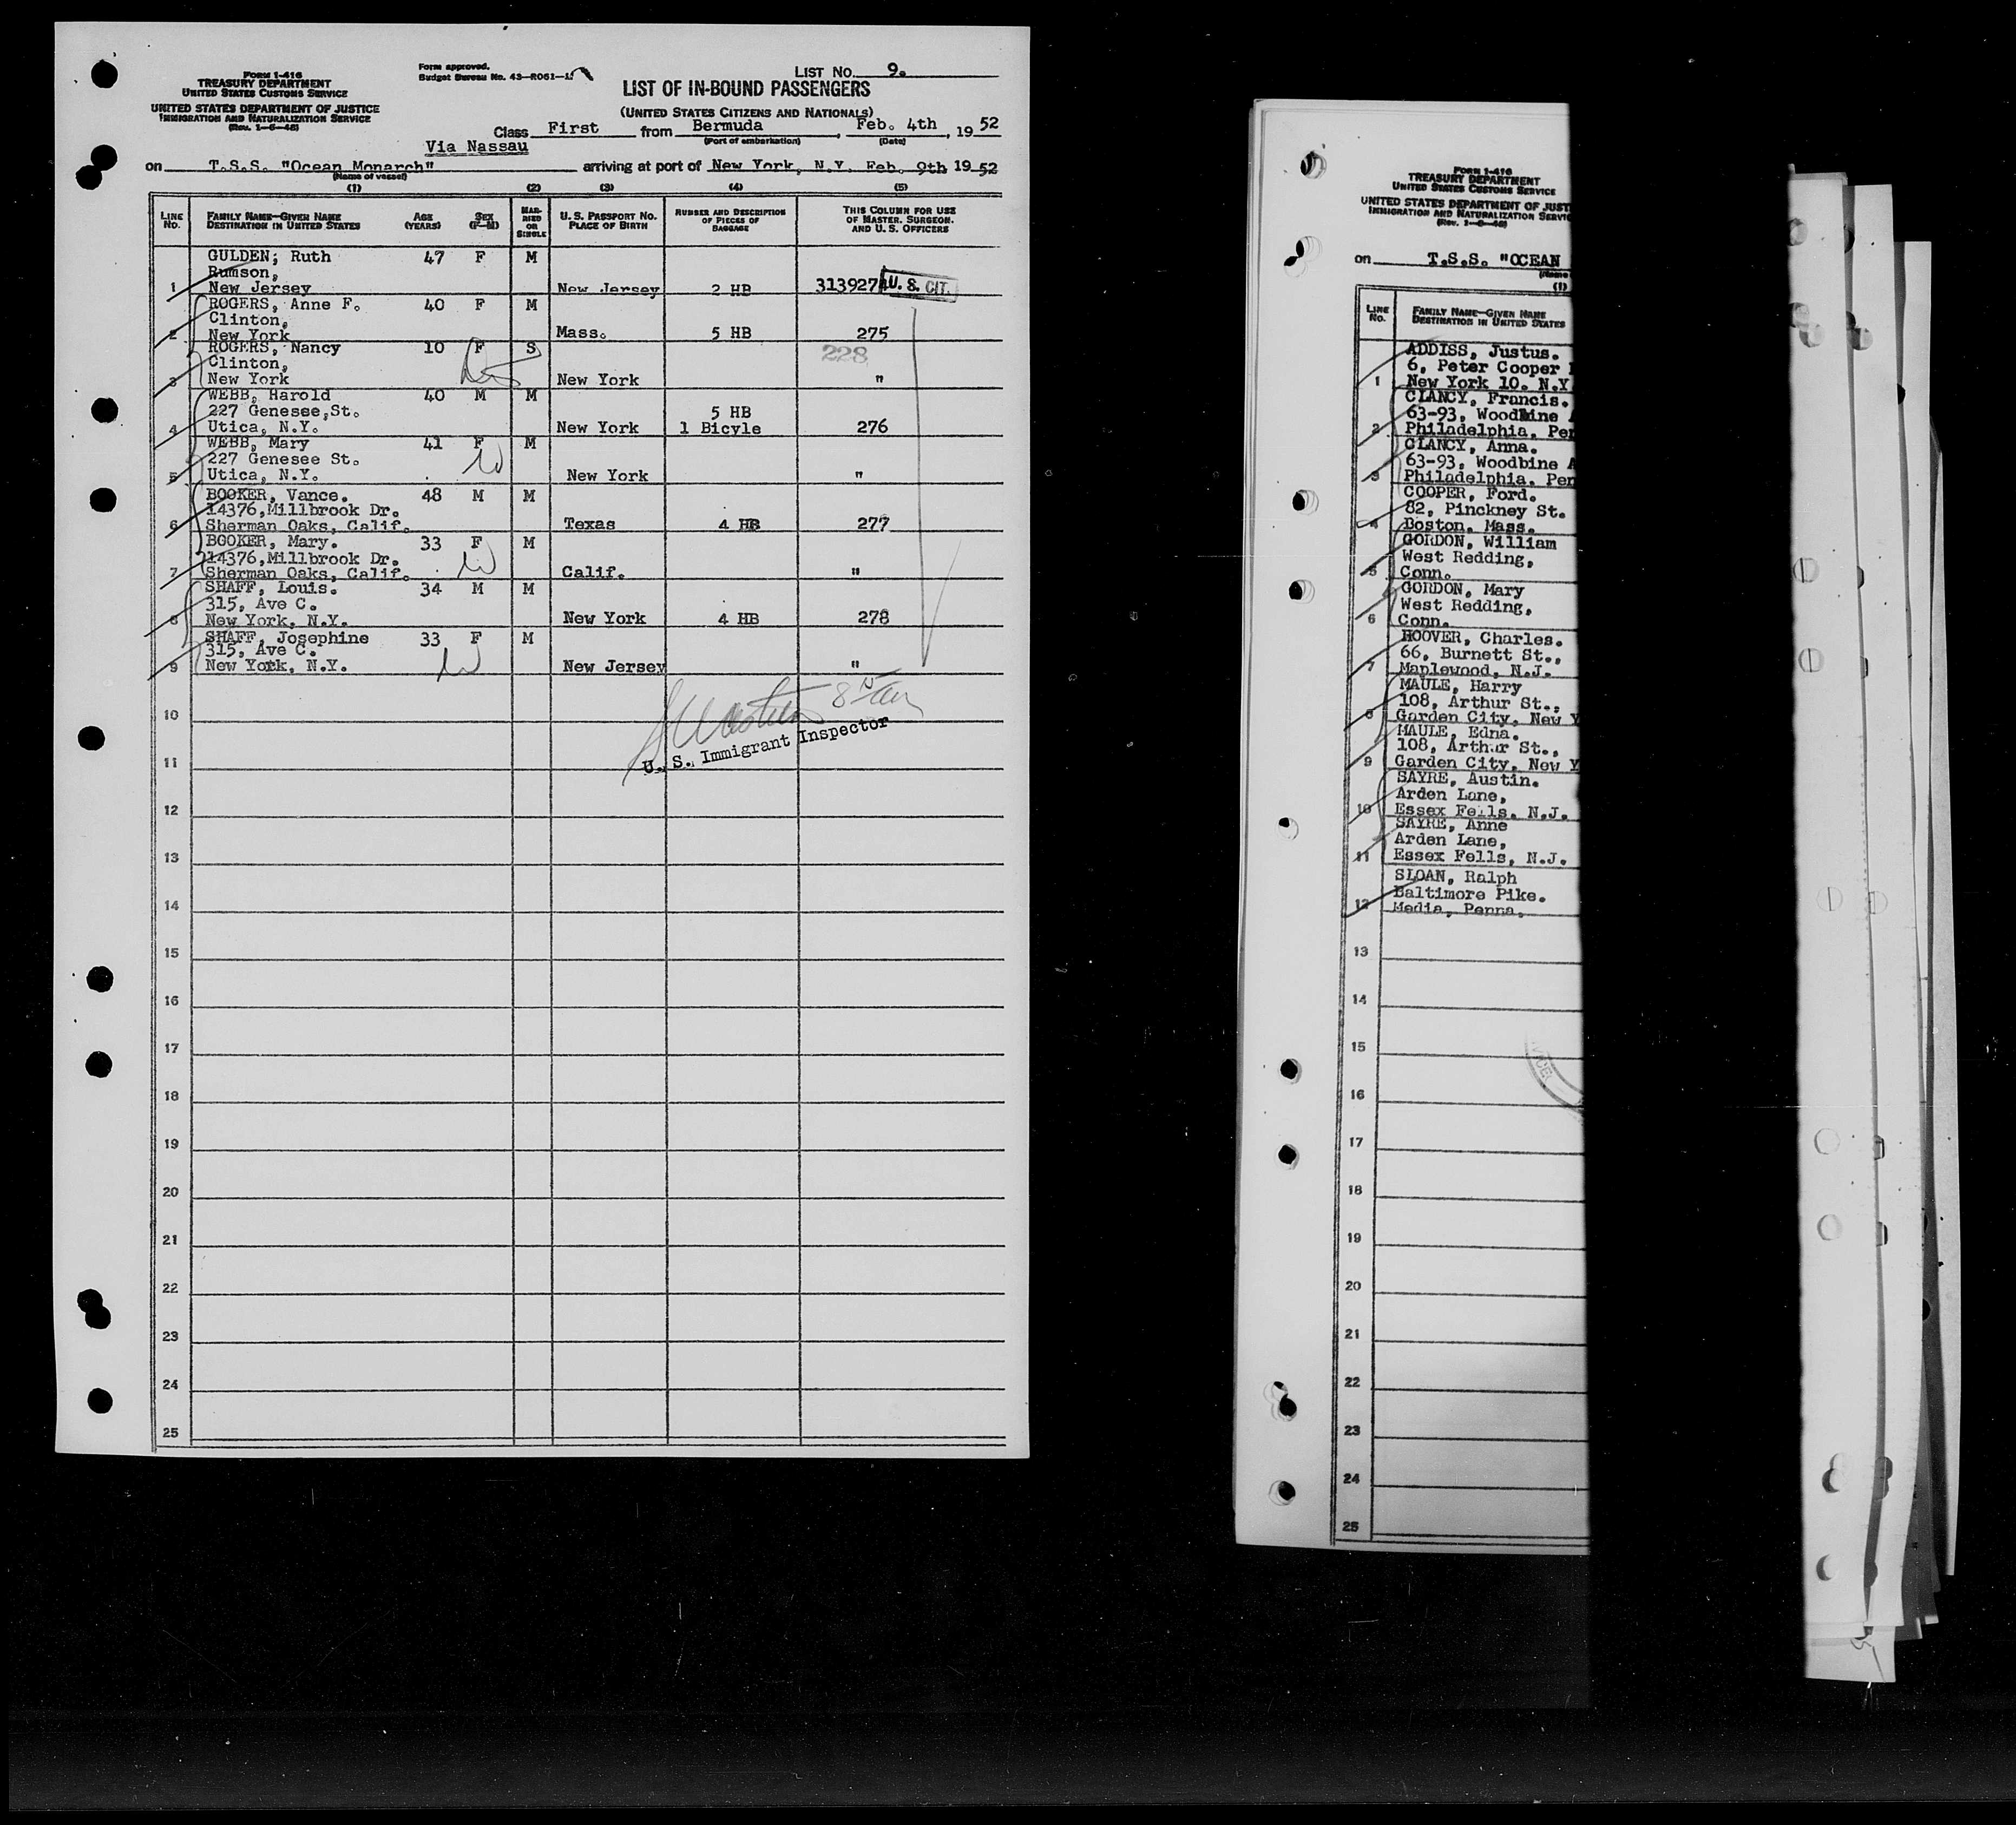 Form I-416
TREASURY DEPARTMENT
UNITED STATES CUSTOMS SERVICE
UNITED STATES DEPARTMENT OF JUSTICE
IMMIGRATION AND NATURALIZATION SERVICE
(Rev. 1-6-48)
Form approved.
Budget Bureau No. 43-R061-
LIST NO. 9.
LIST OF IN-BOUND PASSENGERS
(UNITED STATES CITIZENS AND NATIONALS)
Class First from Bermuda, Feb. 4th, 19 52
(Port of embarkation) (Date)
Via Nassau
on T.S.S. "Ocean Monarch" arriving at port of New York, N.Y. Feb. 9th 19 52
(Name of vessel)
(1) (2) (3) (4) (5)
LINE NO. FAMILY NAME—GIVEN NAME DESTINATION IN UNITED STATES AGE (YEARS) SEX (F—M) MARRIED OR SINGLE U. S. PASSPORT NO. PLACE OF BIRTH NUMBER AND DESCRIPTION OF PIECES OF BAGGAGE THIS COLUMN FOR USE OF MASTER, SURGEON, AND U. S. OFFICERS
GULDEN; Ruth 47 F M
Rumson,
1 New Jersey New Jersey 2 HB 313927 U. S. CIT.
ROGERS, Anne F. 40 F M
Clinton,
2 New York Mass. 5 HB 275
ROGERS, Nancy 10 F S 228
Clinton,
3 New York New York "
WEBB, Harold 40 M M
227 Genesee,St. 5 HB
4 Utica, N.Y. New York 1 Bicyle 276
WEBB, Mary 41 F M
227 Genesee St.
5 Utica, N.Y. New York "
BOOKER, Vance. 48 M M
14376,Millbrook Dr.
6 Sherman Oaks, Calif. Texas 4 HB 277
BOOKER, Mary. 33 F M
14376,Millbrook Dr.
7 Sherman Oaks, Calif. Calif. "
SHAFF, Louis. 34 M M
315, Ave C.
8 New York, N.Y. New York 4 HB 278
SHAFF, Josephine 33 F M
315, Ave C.
9 New York, N.Y. New Jersey "
10
U. S. Immigrant Inspector
11
12
13
14
15
16
17
18
19
20
21
22
23
24
25
Form I-416
TREASURY DEPARTMENT
UNITED STATES CUSTOMS SERVICE
UNITED STATES DEPARTMENT OF JUST
IMMIGRATION AND NATURALIZATION SERVI
(Rev. 1-6-48)
on T.S.S. "OCEAN
(Name
(1)
LINE NO. FAMILY NAME—GIVEN NAME DESTINATION IN UNITED STATES
ADDISS, Justus.
6, Peter Cooper
1 New York 10. N.Y
CLANCY, Francis.
63-93, Woodbine A
2 Philadelphia, Pen
CLANCY, Anna.
63-93, Woodbine A
3 Philadelphia. Pen
COOPER, Ford.
82, Pinckney St.
4 Boston, Mass.
GORDON, William
West Redding,
5 Conn.
GORDON, Mary
West Redding,
6 Conn.
HOOVER, Charles.
66, Burnett St.,
7 Maplewood, N.J.
MAULE, Harry
108, Arthur St.,
8 Garden City, New Y
MAULE, Edna.
108, Arthur St.,
9 Garden City, New Y
SAYRE, Austin.
Arden Lane,
10 Essex Fells. N.J.
SAYRE, Anne
Arden Lane,
11 Essex Fells, N.J.
SLOAN, Ralph
Baltimore Pike.
12 Media, Penna.
13
14
15
16
17
18
19
20
21
22
23
24
25